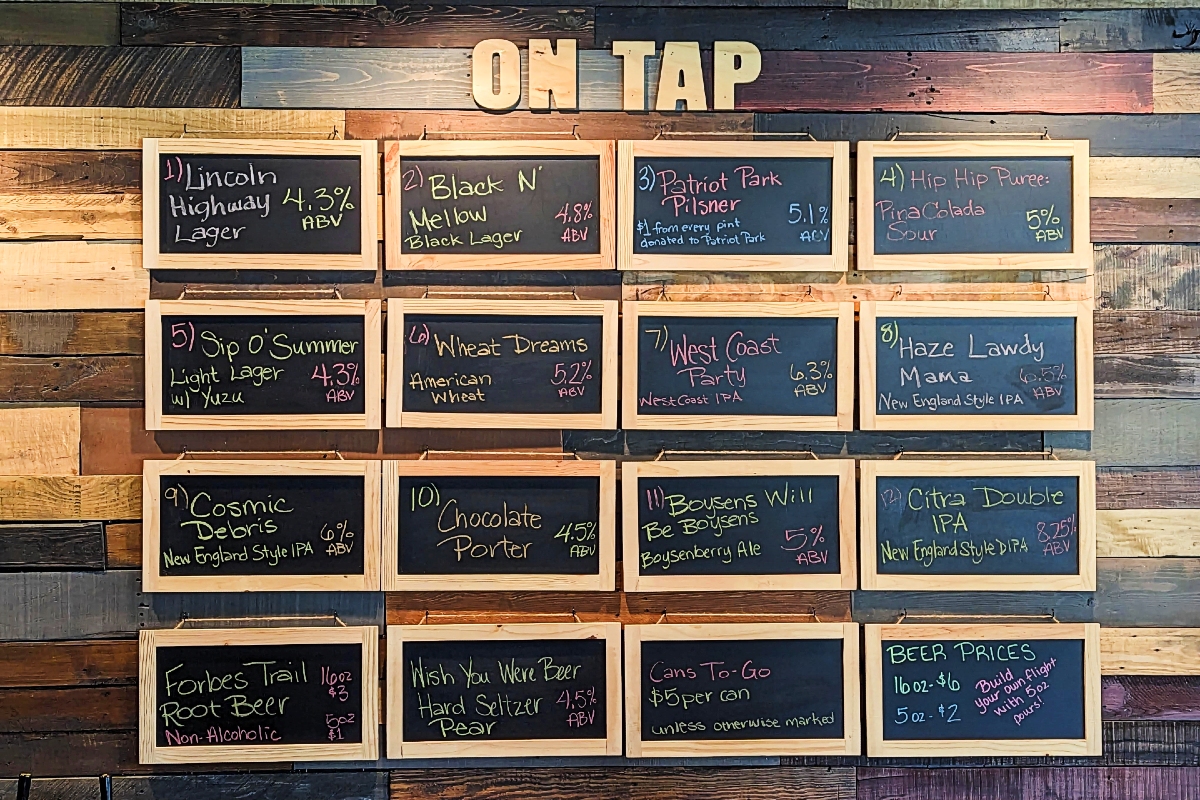 ON TAP
1) Lincoln
Highway
Lager
4.3%
ABV
2) Black N'
Mellow
Black Lager
4.8%
ABV
3) Patriot Park
Pilsner
$1 from every pint
donated to Patriot Park
5.1%
ABV
4) Hip Hip Puree:
Pina Colada
Sour
5%
ABV
5) Sip O'Summer
Light Lager
w/ Yuzu
4.3%
ABV
6) Wheat Dreams
American
Wheat
5.2%
ABV
7) West Coast
Party
West Coast IPA
6.3%
ABV
8) Haze Lawdy
Mama
New England Style IPA
6.5%
ABV
9) Cosmic
Debris
New England Style IPA
6%
ABV
10) Chocolate
Porter
4.5%
ABV
11) Boysens Will
Be Boysens
Boysenberry Ale
5%
ABV
12) Citra Double
IPA
New England Style DIPA
8.25%
ABV
Forbes Trail
Root Beer
Non-Alcoholic
16oz
$3
5oz
$1
Wish You Were Beer
Hard Seltzer
Pear
4.5%
ABV
Cans To-Go
$5 per can
unless otherwise marked
BEER PRICES
16 oz - $6
5 oz - $2
Build
your own flight
with 5oz
pours!